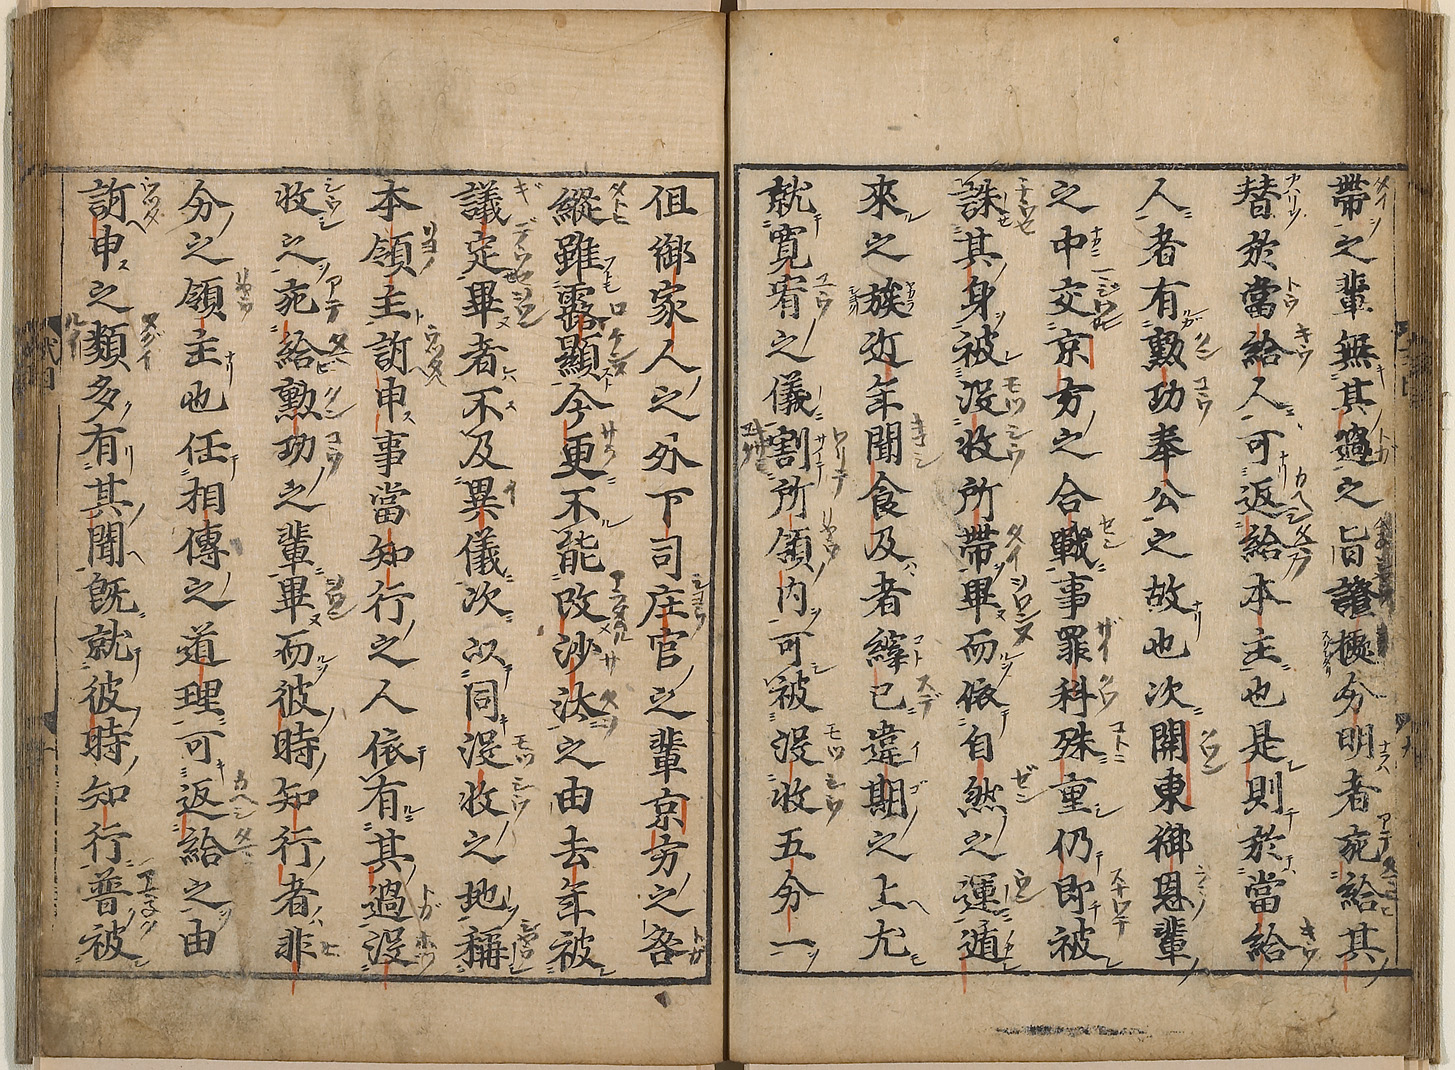 帶之輩無其過之旨證據分明者宛給其
替於當給人可返給本主也是則於當給
人者有勲功奉公之故也次關東御恩輩
之中交京方之合戰事罪科殊重仍即被
誅其身被没收所帶畢而依自然之運遁
來之族近年聞食及者縡已違期之上尤
就寛宥之儀割所領内可被没收五分一
但御家人之外下司庄官之輩京方之咎
縱雖露顯今更不能改沙汰之由去年被
議定畢者不及異儀次以同没收之地稱
本領主訴申事當知行之人依有其過没
收之宛給勲功之輩畢而彼時知行者非
分之領主也任相傳之道理可返給之由
訴申之類多有其聞既就彼時知行普被